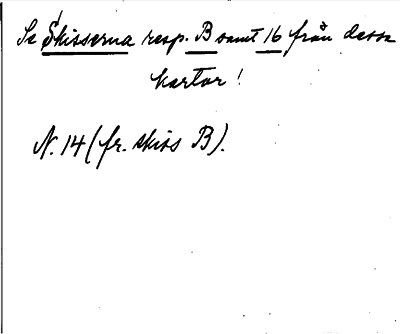 Se Skisserna resp. B samt 16 från dessa
kartor!
N. 14 (fr. skiss B).